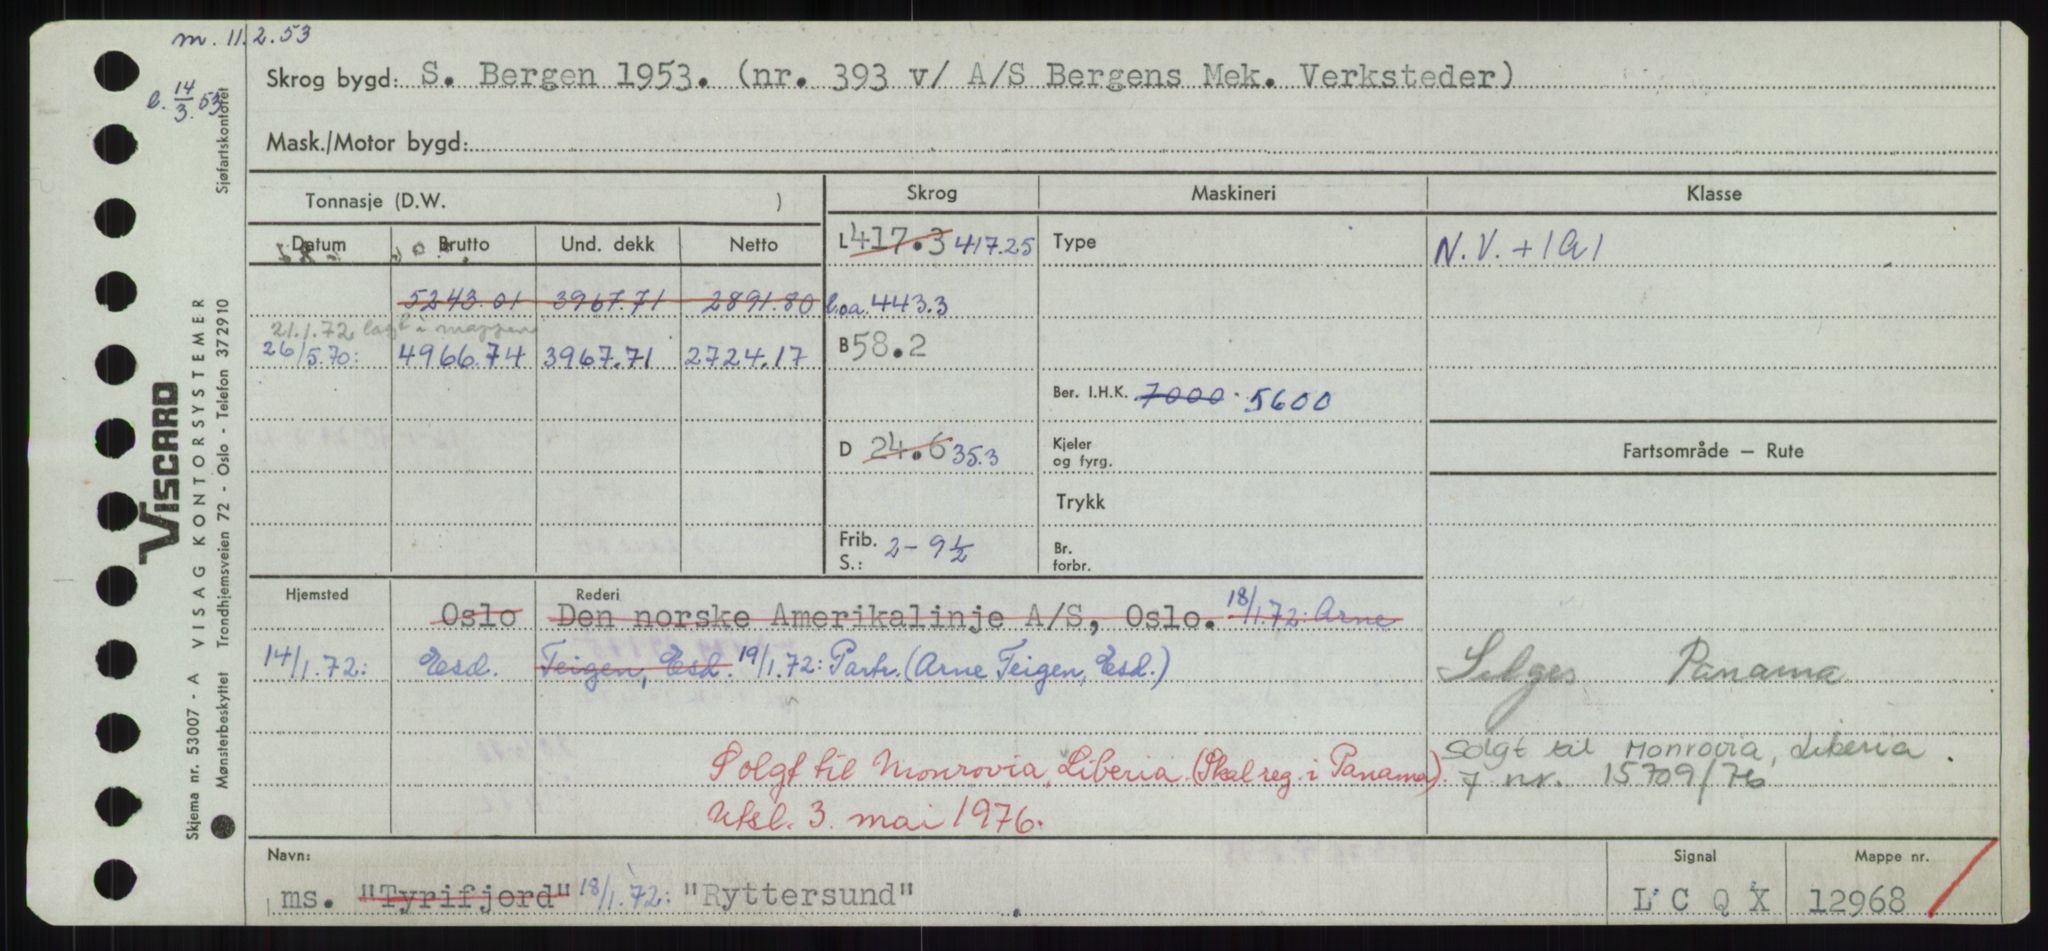 m. 11.2.53
b. 14/3.53
Skrog bygd: S. Bergen 1953. (nr. 393 v/ A/S Bergens Mek. Verksteder)
Mask./Motor bygd:
Tonnasje (D.W. )
Skrog
Maskineri
Klasse
Datum Brutto Und. dekk Netto
L 417.3 417.25
Type
N.V. + 1A1
5243.01 3967.71 2891.80
l.oa. 443.3
21.1.72 lagt i mappene
26/5.70: 4966.74 3967.71 2724.17
B 58.2
Ber. I.H.K. 7000. 5600
D 24.6 35.3
Kjeler
og fyrg.
Fartsområde – Rute
Trykk
Frib.
S.: 2 - 9 ½
Br.
forbr.
Hjemsted
Rederi
Oslo Den norske Amerikalinje A/S, Oslo. 18/1.72: Arne
14/1.72: Esd. Teigen, Esd. 19/1.72: Partr. (Arne Teigen, Esd.)
Selges Panama
Solgt til Monrovia, Liberia (Skal reg. i Panama).
Utsl. 3. mai 1976.
Solgt til Monrovia, Liberia.
7 nr. 15709/76
Navn:
ms. "Tyrifjord" 18/1.72: "Ryttersund"
Signal
L C Q X
Mappe nr.
12968
Skjema nr. 53007 - A VISAG KONTORSYSTEMER
Mønsterbeskyttet Trondhjemsveien 72 - Oslo - Telefon 372910 Sjøfartskontoret
VISCARD